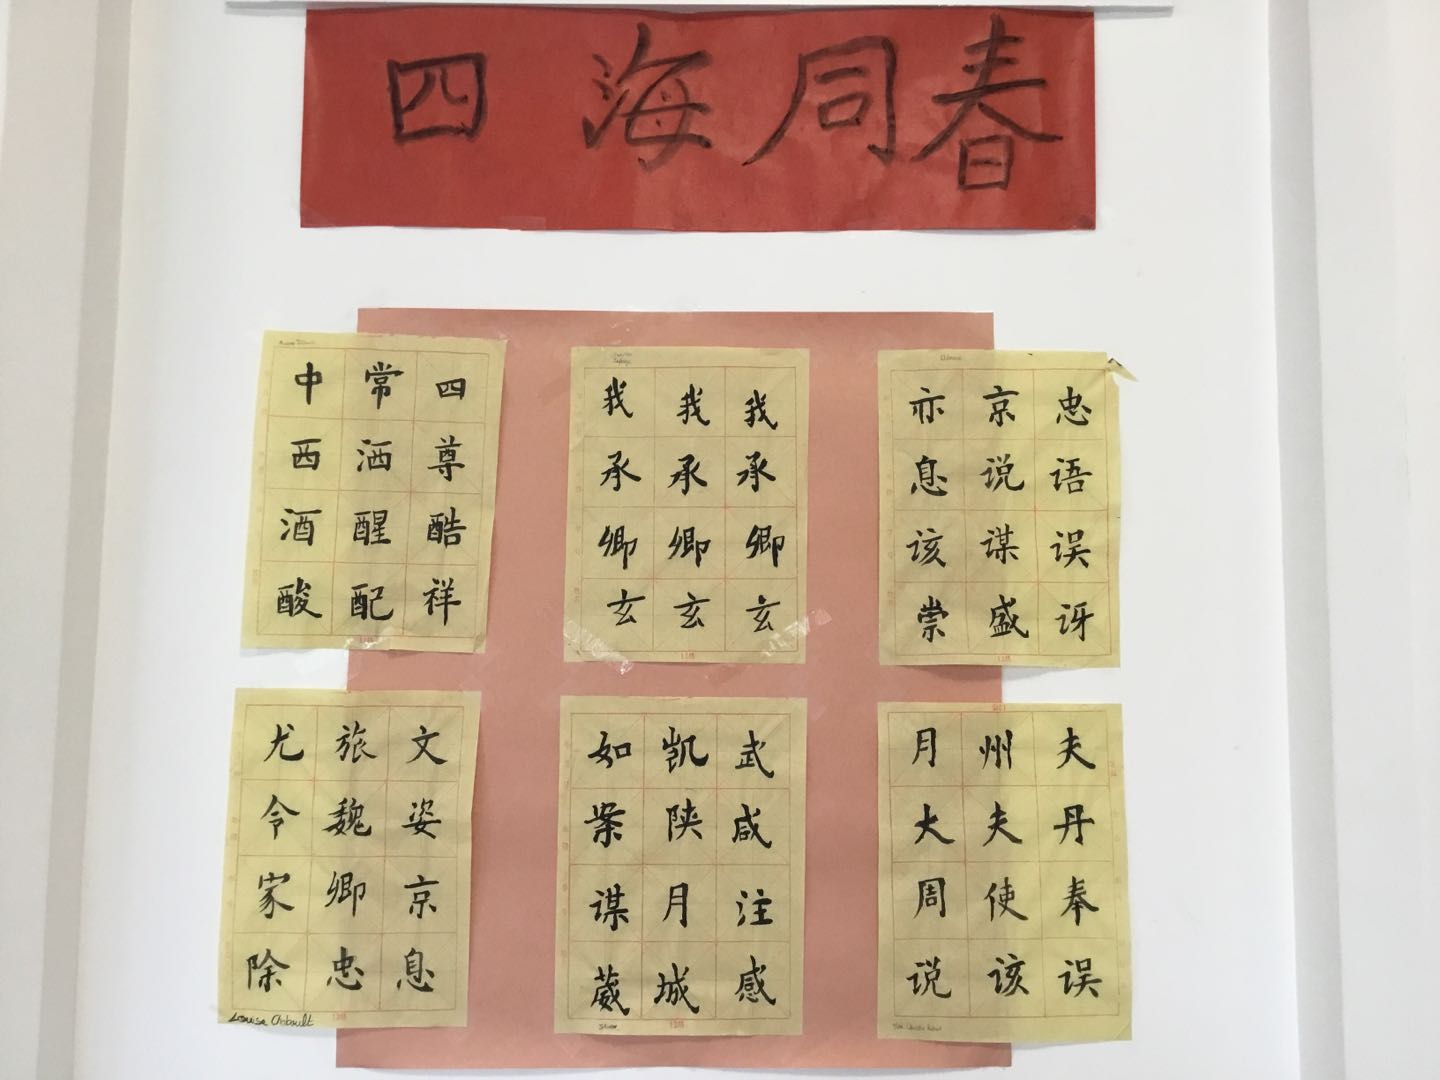 四海同春
中常四
西洒尊
酒醒酷
酸配祥
我我我
承承承
卿卿卿
玄玄玄
亦京忠
息说语
该谋误
崇盛讶
尤旅文
令魏姿
家卿京
除忠息
Louise Chabault
如凯武
案陕咸
谋月注
葳城感
月州夫
大夫丹
周使奉
说该误